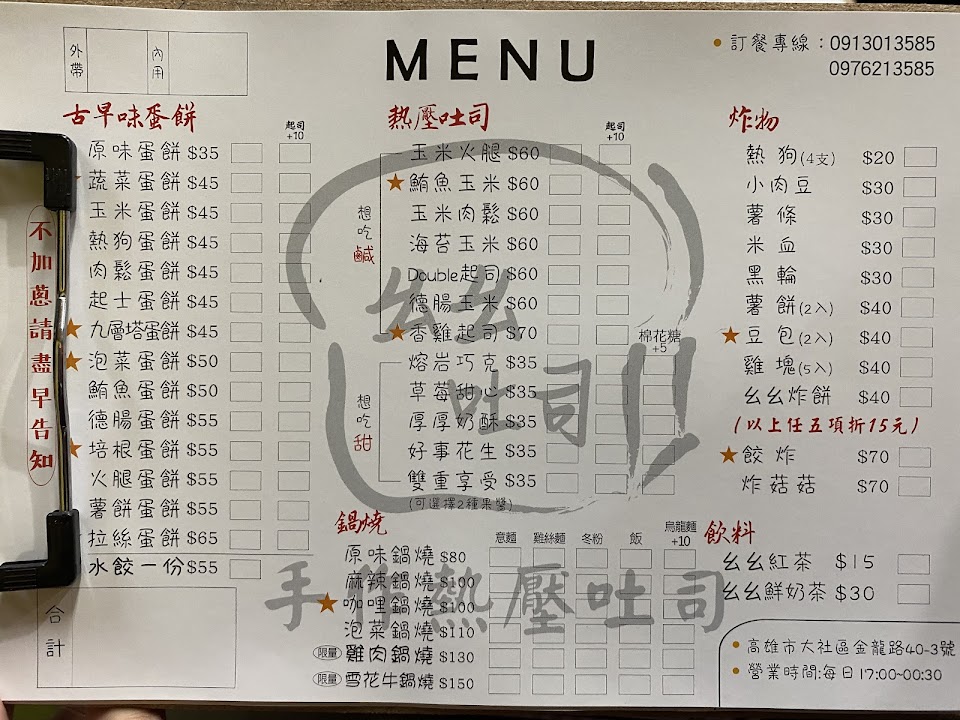 外帶
內用
MENU
• 訂餐專線：0913013585
0976213585
不加蔥請盡早告知
古早味蛋餅
起司 +10
原味蛋餅 $35
蔬菜蛋餅 $45
玉米蛋餅 $45
熱狗蛋餅 $45
肉鬆蛋餅 $45
起士蛋餅 $45
★ 九層塔蛋餅 $45
★ 泡菜蛋餅 $50
鮪魚蛋餅 $50
德腸蛋餅 $55
★ 培根蛋餅 $55
火腿蛋餅 $55
薯餅蛋餅 $55
拉絲蛋餅 $65
水餃一份 $55
合計
熱壓吐司
起司 +10
想吃鹹
玉米火腿 $60
★ 鮪魚玉米 $60
玉米肉鬆 $60
海苔玉米 $60
Double起司 $60
德腸玉米 $60
★ 香雞起司 $70
棉花糖 +5
想吃甜
熔岩巧克 $35
草莓甜心 $35
厚厚奶酥 $35
好事花生 $35
雙重享受 $35
(可選擇2種果醬)
鍋燒
意麵 雞絲麵 冬粉 飯 烏龍麵 +10
原味鍋燒 $80
麻辣鍋燒 $100
★ 咖哩鍋燒 $100
泡菜鍋燒 $110
限量 雞肉鍋燒 $130
限量 雪花牛鍋燒 $150
炸物
熱狗(4支) $20
小肉豆 $30
薯條 $30
米血 $30
黑輪 $30
薯餅(2入) $40
★ 豆包(2入) $40
雞塊(5入) $40
幺幺炸餅 $40
(以上任五項折15元)
★ 餃炸 $70
炸菇菇 $70
飲料
幺幺紅茶 $15
幺幺鮮奶茶 $30
• 高雄市大社區金龍路40-3號
• 營業時間:每日17:00~00:30
幺幺吐司
手作熱壓吐司